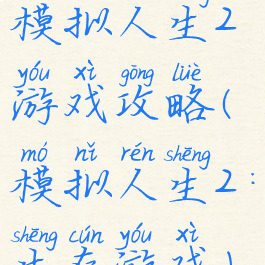 模拟人生2
yóu xì gōng lüè
游戏攻略(
mó nǐ rén shēng
模拟人生2:
shēng cún yóu xì
生存游戏)